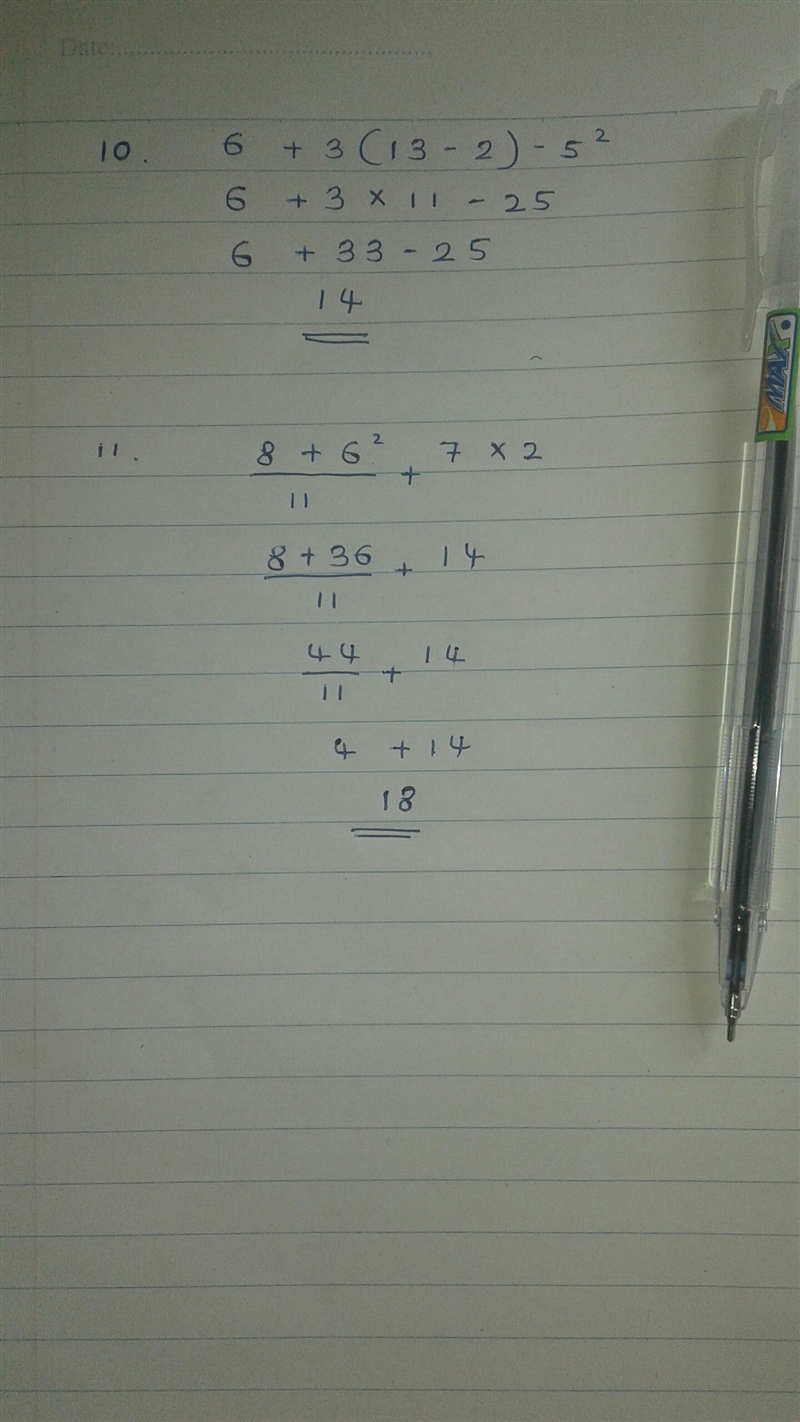 Date:
10. 6 + 3 (13 - 2) - 5²
6 + 3 × 11 - 25
6 + 33 - 25
14
11. 8 + 6² + 7 × 2
11
8 + 36 + 14
11
44 + 14
11
4 + 14
18
MAX